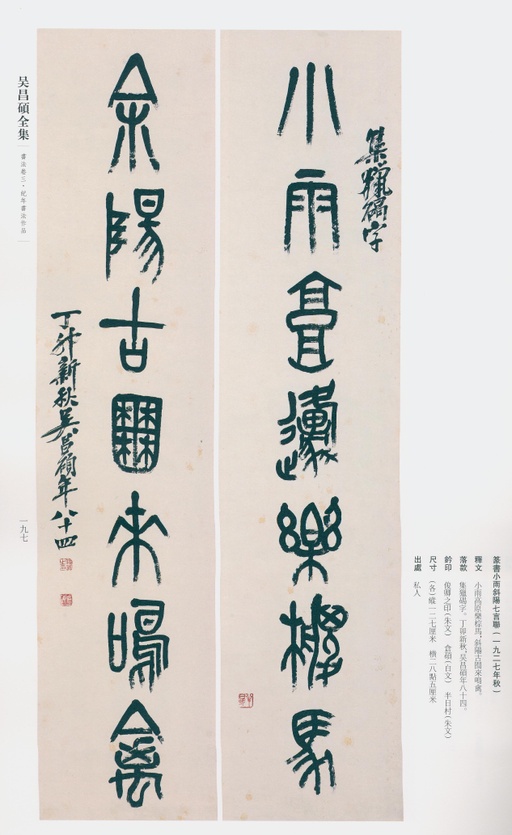 集獵碣字
小雨高邍樂㯱馬
余陽古囿來鳴禽
丁卯新秋吳昌碩年八十四
篆書小雨斜陽七言聯(一九二七年秋)
釋文 小雨高原樂椶馬,斜陽古囿來鳴禽。
落款 集獵碣字。丁卯新秋,吴昌碩年八十四。
鈐印 俊卿之印(朱文) 倉碩(白文) 半日村(朱文)
尺寸 (各)縱一二七厘米 橫二八點五厘米
出處 私人
吴昌碩全集
書法卷三·紀年書法作品
一九七